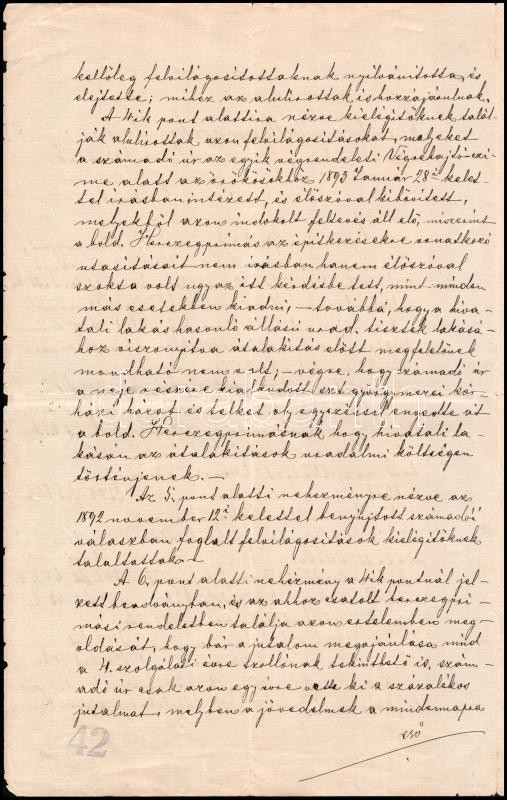 kellőleg felvilágosítottaknak nyilvánította, és
elejtette; mihez az alulírottak is hozzájárulnak.
A 4ik pont alattira nézve kielégítőknek talál-
ják alulírottak azon felvilágosításokat, melyeket
a számadó úr az egyik végrendeleti Végrehajtó czi-
me alatt az örökösökhöz 1893 Január 28án kelet-
tel írásban intézett, és élőszóval kibővített,
melyekből azon indokolt feltevés áll elő, miszerint
a bold. Herczegprímás az építkezésekre vonatkozó
utasításait nem írásban hanem élőszóval
szokta volt úgy az itt kérdésbe tett, mint minden
más esetekben kiadni, – továbbá, hogy a hiva-
tali lakás hasonló állású urad. tisztek lakásá-
hoz viszonyítva átalakítás előtt megfelelőnek
mondható nem volt; – végre, hogy számadó úr
a neje részére szt györgymezei kór-
házi házat és telket oly egyezséggel engedte át
a bold. Herczegprímásnak, hogy hivatali la-
kásán az átalakítások uradalmi költségen
történjenek. –
Az 5. pont alatti nehezményre nézve az
1892 november 12én kelettel benyújtott számadói
válaszban foglalt felvilágosítások kielégítőknek
találtattak –
A 6. pont alatti nehézmény a 4ik pontnál jel-
zett beadványban, és az ahhoz csatolt herczegprí-
mási rendeletben találja azon értelemben meg-
oldását, hogy bár a jutalom megajánlása mind
a 4. szolgálati évre szóllónak tekinthető is, szám-
adó úr csak azon egy évre vette ki a százalékos
jutalmat, melyben a jövedelmek a mindennapra
eső
42